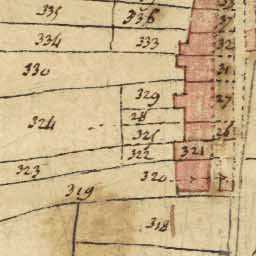 335 336 37
334 333 32
330 31
329 27
324 28
325 26
322 321
323 320
319
318